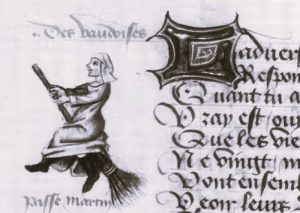 Des vaudoises
advers
Respon
Quant tu a
Vray est ouy
Que les vie
Ne vingt m
Vont ensem
Veoir leurs
passe martin